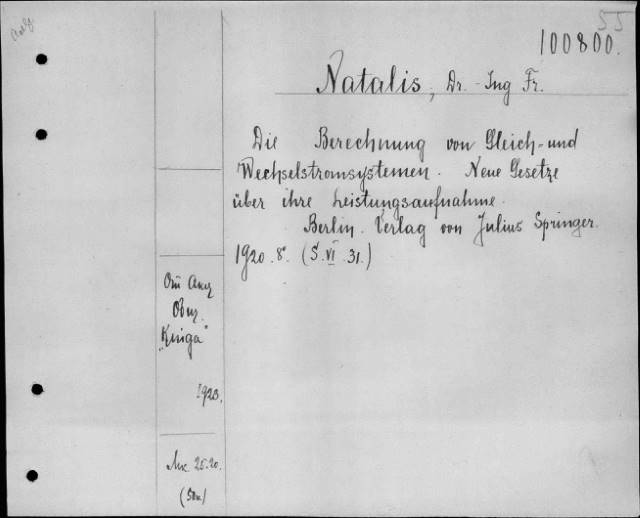 55
100800.
Natalis, Dr. - Ing Fr.
Die Berechnung von Gleich- und
Wechselstromsystemen. Neue Gesetze
über ihre Leistungsaufnahme.
Berlin. Verlag von Julius Springer.
1920. 8°. (S. VI. 31.)
"Kniga"
1923.
25.20.